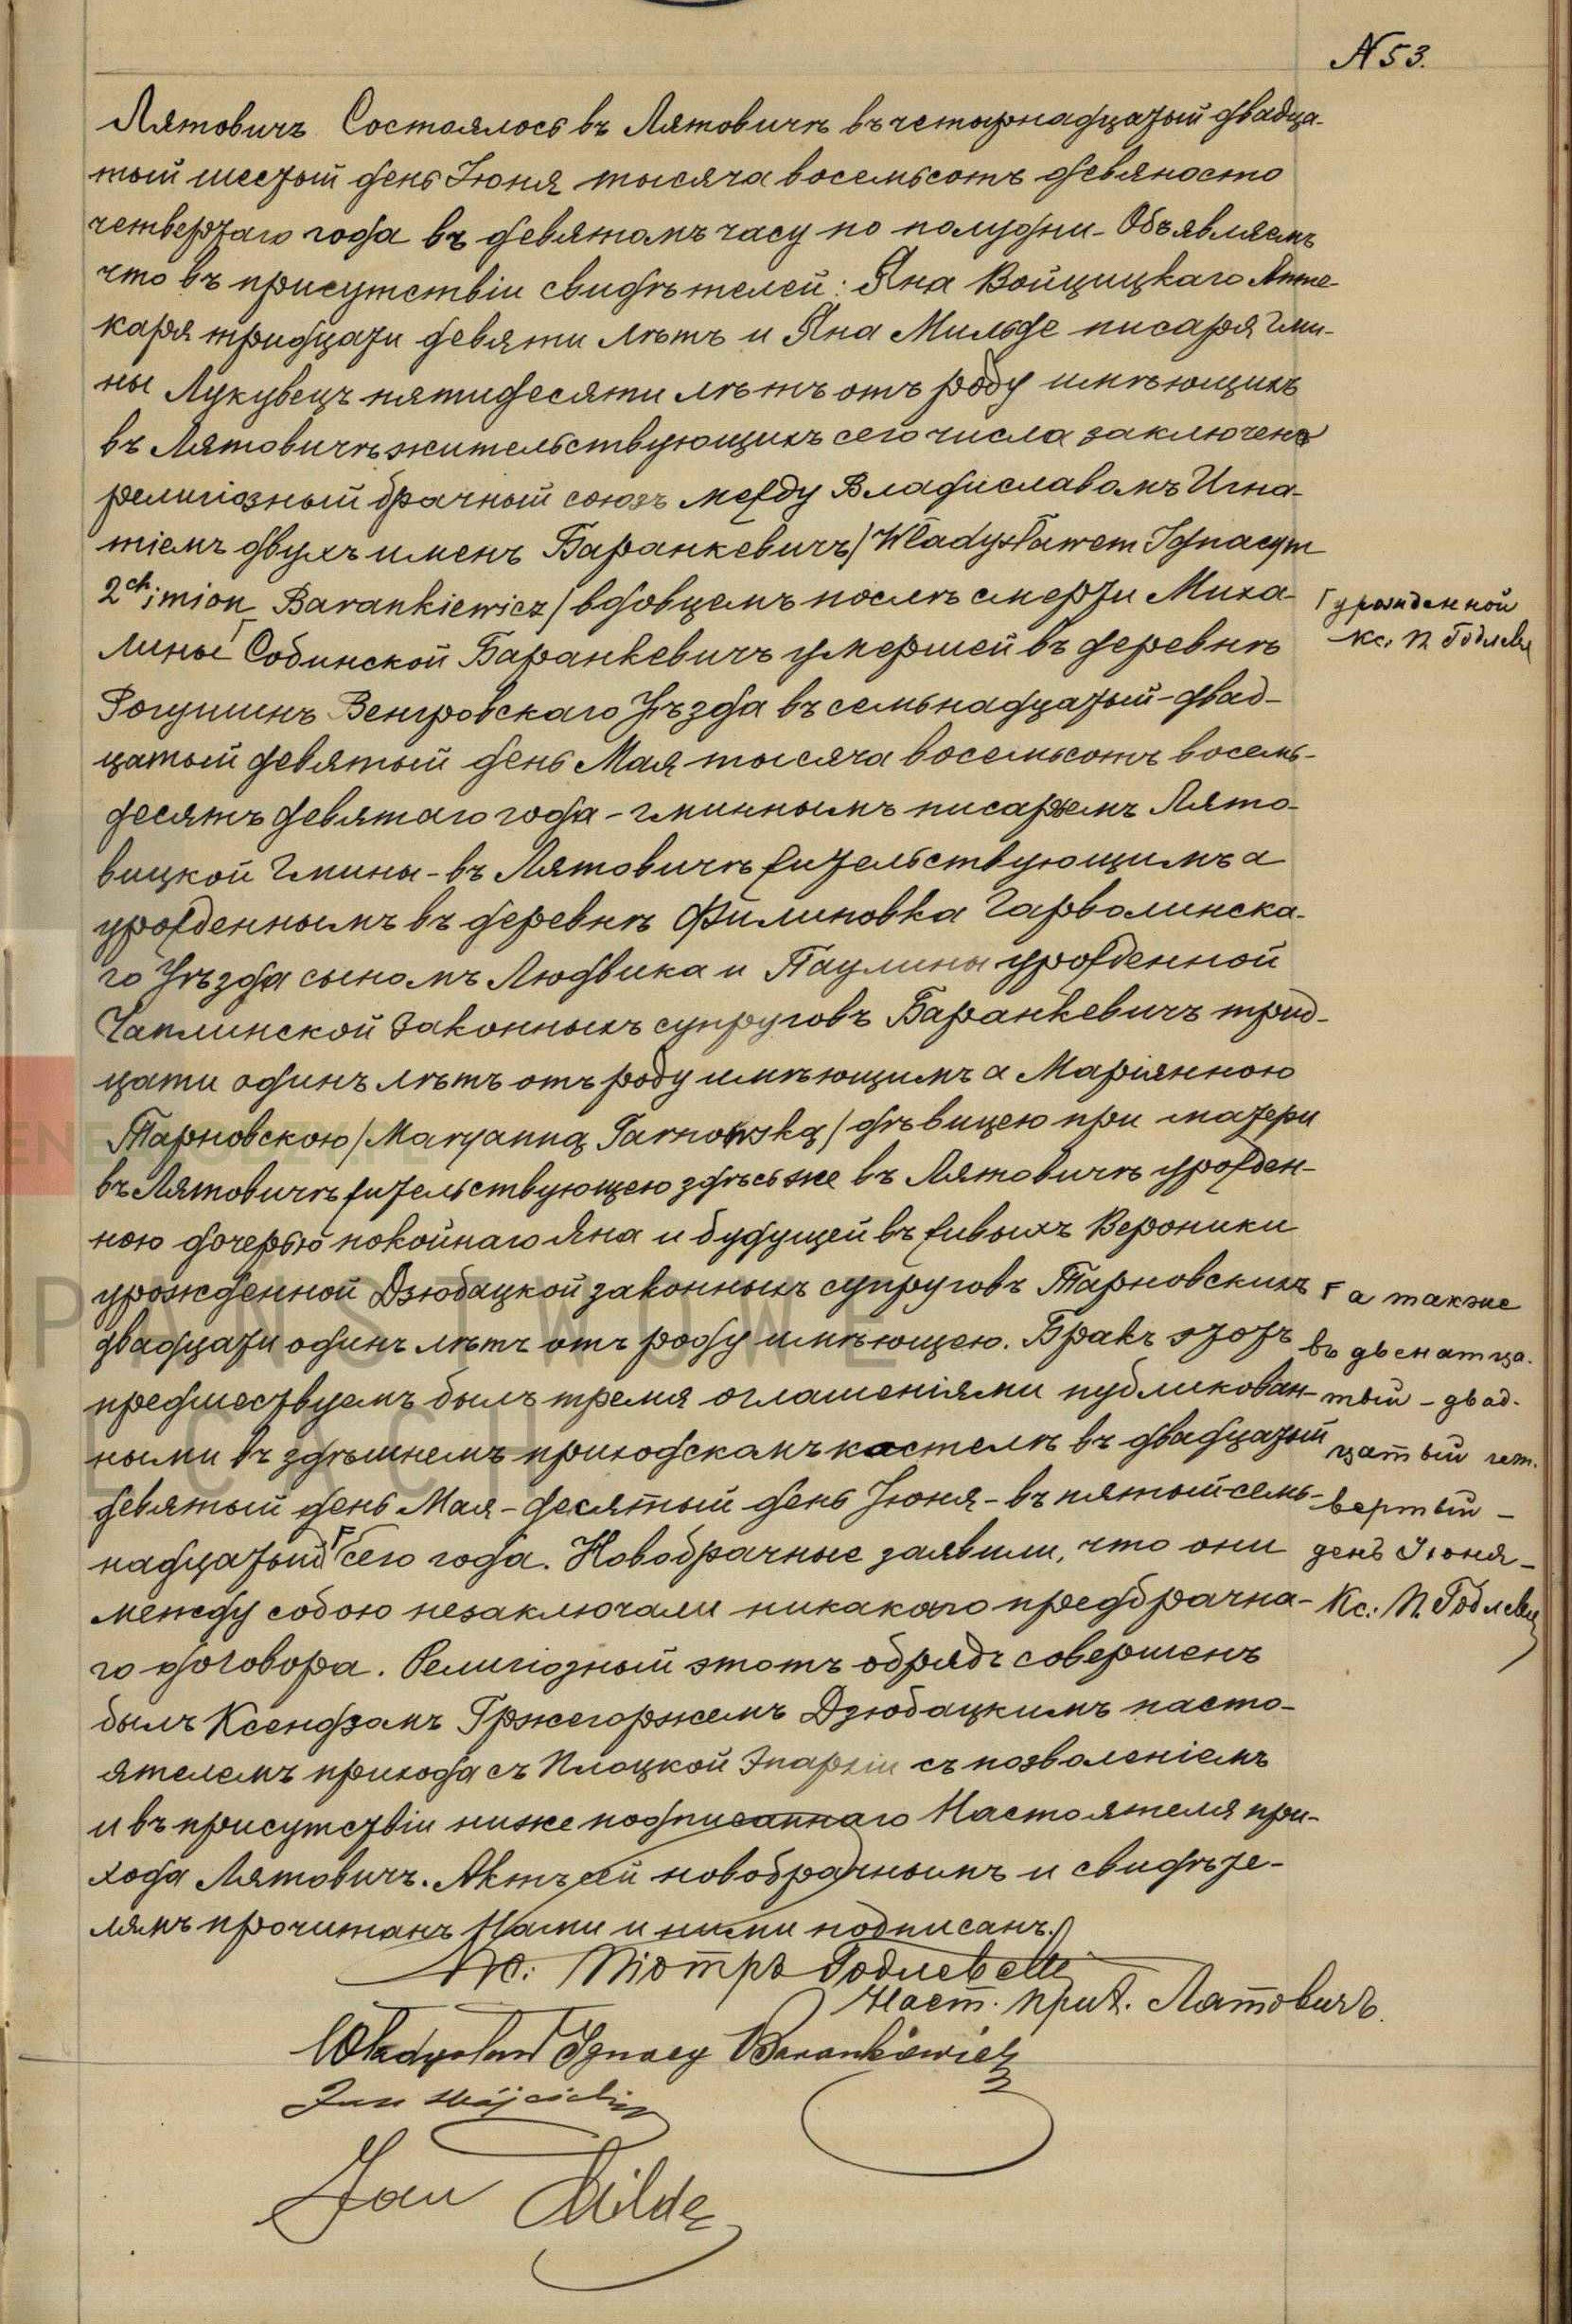 N 53.
Лятовичъ Состоялось въ Лятовичѣ въ четырнадцатый двадца-
тый шестый день Іюня тысяча восемьсотъ девяносто
четвертаго года въ девятомъ часу по полудни - Объявляемъ
что въ присутствіи свидѣтелей: Яна Войцицкаго Апте-
каря тридцати девяти лѣтъ и Яна Мильде писаря Гми-
ны Лукувецъ пятидесяти лѣтъ отъ роду имѣющихъ
въ Лятовичѣ жительствующихъ сего числа заключенъ
религіозный брачный союзъ между Владиславомъ Игна-
тіемъ двухъ именъ Баранкевичъ /Władysławem Ignacym
2ch imion Barankiewicz/ вдовцемъ послѣ смерти Миха-
лины Г Собинской Баранкевичъ умершей въ деревнѣ
Г урожденной
Кс. П Годлевс
Рогушинъ Венгровскаго Уѣзда въ семьнадцатый - двад-
цатый девятый день Мая тысяча восемьсотъ восемь-
десятъ девятаго года - гминнымъ писаремъ Лято-
вицкой Гмины - въ Лятовичѣ жительствующимъ а
урожденнымъ въ деревнѣ Филиповка Гарволинска-
го Уѣзда сыномъ Людвика и Паулины урожденной
Чаплинской законныхъ супруговъ Баранкевичъ трид-
цати одинъ лѣтъ отъ роду имѣющимъ а Маріянною
Тарновскою /Maryanną Tarnowską/ дѣвицею при матери
въ Лятовичѣ жительствующею здѣсь же въ Лятовичѣ урожден-
ною дочерью покойнаго Яна и будущей въ живыхъ Вероники
урожденной Дзюбацкой законныхъ супруговъ Тарновскихъ
двадцати одинъ лѣтъ отъ роду имѣющею. Бракъ этотъ
предшествуемъ былъ тремя оглашеніями публикован-
ными въ здѣшнемъ приходскомъ костелѣ въ двадцатый
девятый день Мая - десятый день Іюня - въ пятый семь-
надцатый Г сего года. Новобрачные заявили, что они
Г а также
въ двенатца-
тый - двад-
цатый чет-
вертый -
день Іюня -
Кс. П. Годлевс
между собою незаключали никакого предбрачна-
го договора. Религіозный этотъ обрядъ совершенъ
былъ Ксендзомъ Гржегоржемъ Дзюбацкимъ насто-
ятелемъ прихода съ Плоцкой Эпархіи съ позволеніемъ
и въ присутствіи ниже подписаннаго Настоятеля при-
хода Лятовичъ. Актъ сей новобрачнымъ и свидѣте-
лямъ прочитанъ Нами и ними подписанъ.
Кс: Піотръ Годлевскі
Наст. прих. Лятовичъ.
Władysław Ignacy Barankiewicz
Jan Wójcicki
Jan Milde
PAŃSTWOWE